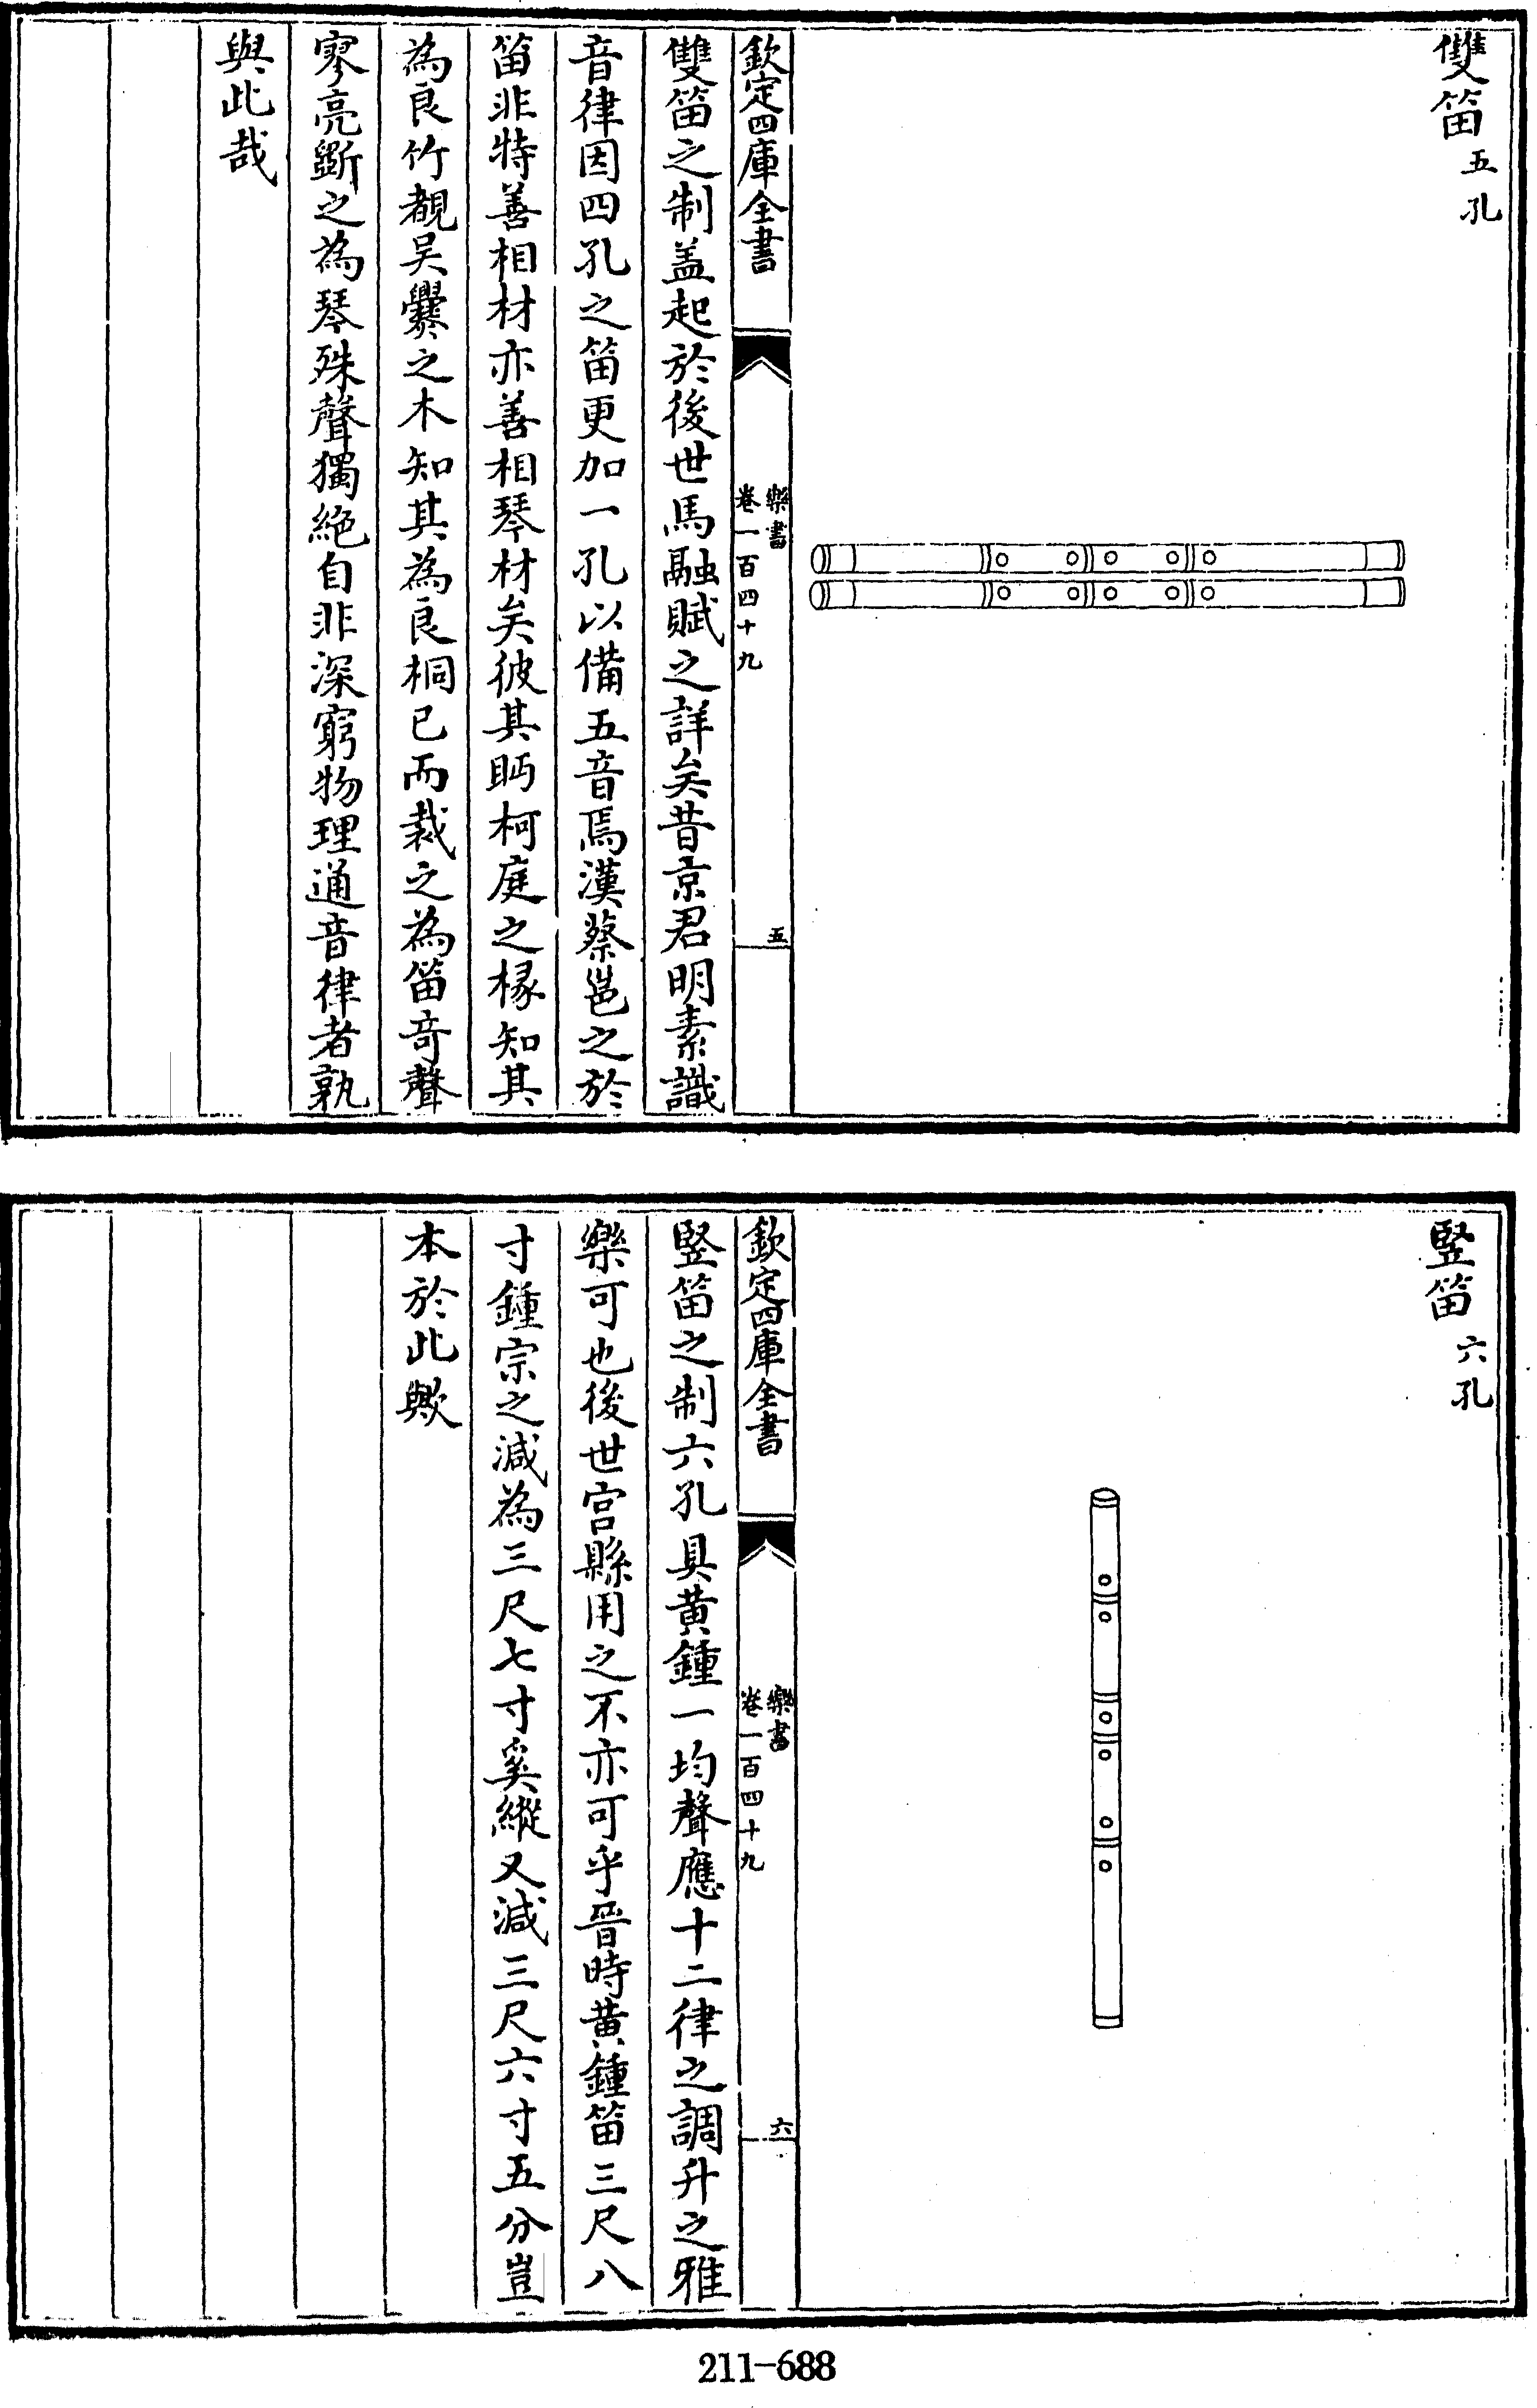 雙笛五孔
欽定四庫全書
樂書
卷一百四十九
五
雙笛之制盖起於後世馬融賦之詳矣昔京君明素識
音律因四孔之笛更加一孔以備五音焉漢蔡邕之於
笛非特善相材亦善相琴材矣彼其眄柯庭之椽知其
為良竹覩吴爨之木知其為良桐已而裁之為笛奇聲
寥亮斵之為琴殊聲獨絶自非深窮物理通音律者孰
與此哉
竪笛六孔
欽定四庫全書
樂書
卷一百四十九
六
竪笛之制六孔具黄鍾一均聲應十二律之調升之雅
樂可也後世宫縣用之不亦可乎晉時黄鍾笛三尺八
寸鍾宗之減為三尺七寸奚縱又減三尺六寸五分豈
本於此歟
211-688